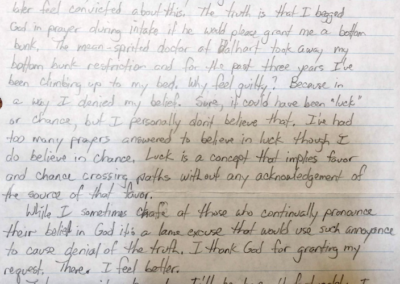 later feel convicted about this. The truth is that I begged
God in prayer during intake if he would please grant me a bottom
bunk. The mean-spirited doctor at Dalhart took away my
bottom bunk restriction and for the past three years I've
been climbing up to my bed. Why feel guilty? Because in
a way I denied my belief. Sure, it could have been "luck"
or chance, but I personally don't believe that. I've had
too many prayers answered to believe in luck though I
do believe in chance. Luck is a concept that implies favor
and chance crossing paths without any acknowledgement of
the source of that favor.
While I sometimes chafe at those who continually pronounce
their belief in God it is a lame excuse that would use such annoyance
to cause denial of the truth. I thank God for granting my
request. There. I feel better.